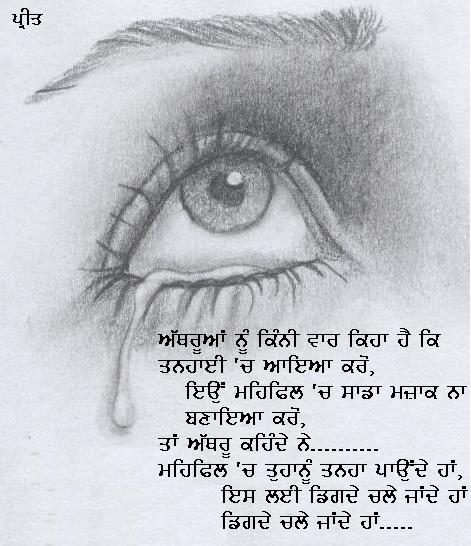 ਪ੍ਰੀਤ
ਅੱਥਰੂਆਂ ਨੂੰ ਕਿੰਨੀ ਵਾਰ ਕਿਹਾ ਹੈ ਕਿ
ਤਨਹਾਈ 'ਚ ਆਇਆ ਕਰੋਂ,
ਇਉਂ ਮਹਿਫਿਲ 'ਚ ਸਾਡਾ ਮਜ਼ਾਕ ਨਾ
ਬਣਾਇਆ ਕਰੋਂ,
ਤਾਂ ਅੱਥਰੂ ਕਹਿੰਦੇ ਨੇ..........
ਮਹਿਫਿਲ 'ਚ ਤੁਹਾਨੂੰ ਤਨਹਾ ਪਾਉਂਦੇ ਹਾਂ,
ਇਸ ਲਈ ਡਿਗਦੇ ਚਲੇ ਜਾਂਦੇ ਹਾਂ
ਡਿਗਦੇ ਚਲੇ ਜਾਂਦੇ ਹਾਂ.....